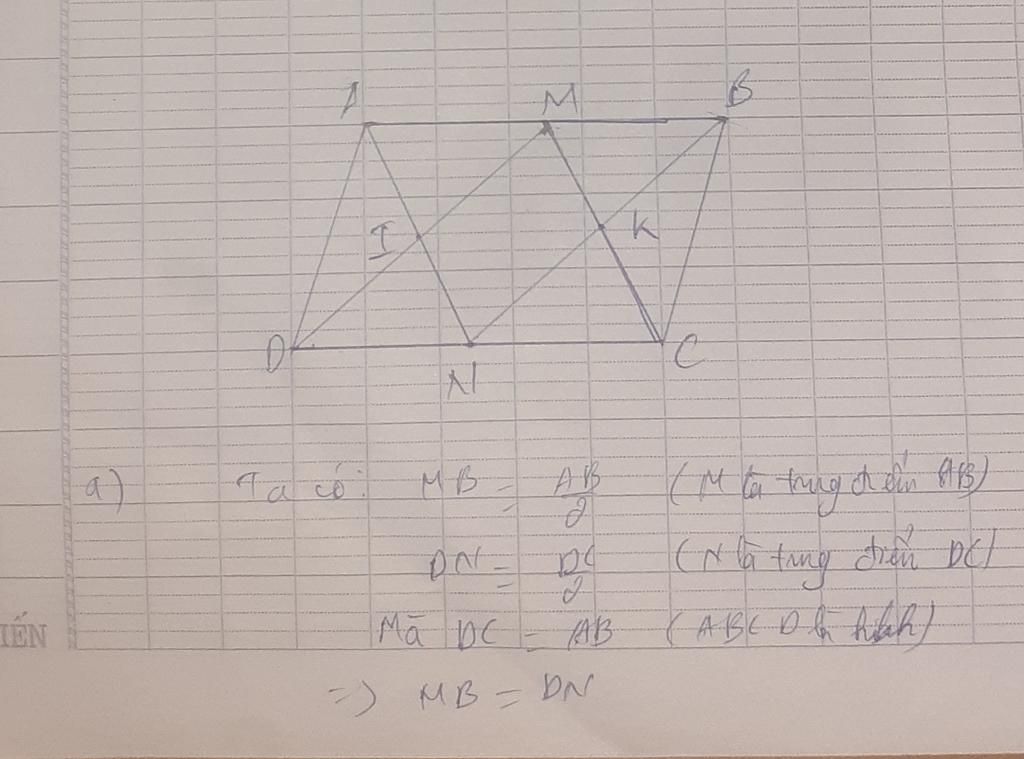 A M B
I K
D N C
a) Ta có: MB = AB/2 (M là trung điểm AB)
DN = DC/2 (N là trung điểm DC)
IẾN Mà DC = AB (ABCD là hbh)
=> MB = DN